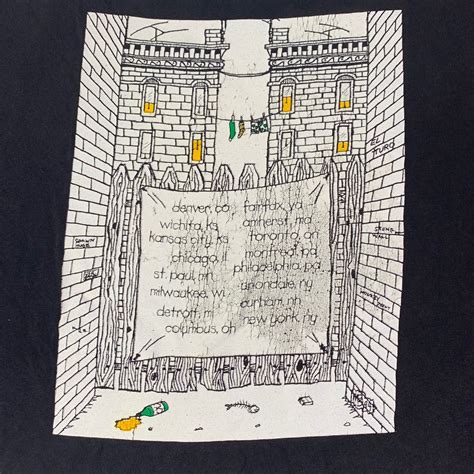 denver, co
wichita, ks
kansas city, ks
chicago, il
st. paul, mn
milwaukee, wi
detroit, mi
columbus, oh
fairfax, va
amherst, ma
toronto, on
montreal, pq
philadelphia, pa
uniondale, ny
durham, nh
new york, ny
EL